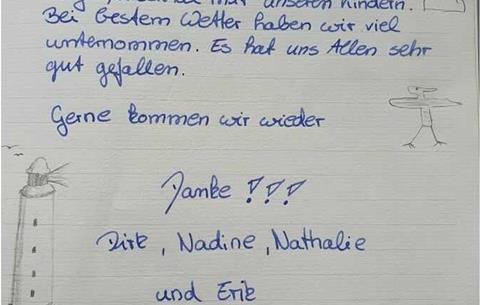 mit unseren Kindern.
Bei bestem Wetter haben wir viel
unternommen. Es hat uns Allen sehr
gut gefallen.
Gerne kommen wir wieder
Danke !!!
Dirk, Nadine, Nathalie
und Erik